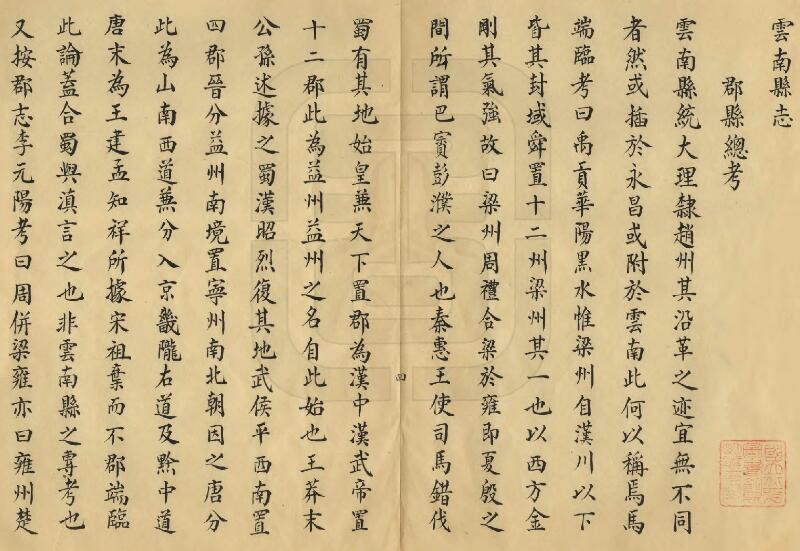 雲南縣志
郡縣總考
雲南縣統大理隸趙州其沿革之迹宜無不同
者然或插於永昌或附於雲南此何以稱焉馬
端臨考曰禹貢華陽黑水惟梁州自漢川以下
皆其封域舜置十二州梁州其一也以西方金
剛其氣強故曰梁州周禮合梁於雍即夏殷之
間所謂巴賨彭濮之人也秦惠王使司馬錯伐
蜀有其地始皇兼天下置郡為漢中漢武帝置
十二郡此為益州益州之名自此始也王莽末
公孫述據之蜀漢昭烈復其地武侯平西南置
四郡晉分益州南境置寧州南北朝因之唐分
此為山南西道兼分入京畿隴右道及黔中道
唐末為王建孟知祥所據宋祖棄而不郡端臨
此論蓋合蜀與滇言之也非雲南縣之專考也
又按郡志李元陽考曰周併梁雍亦曰雍州楚
四